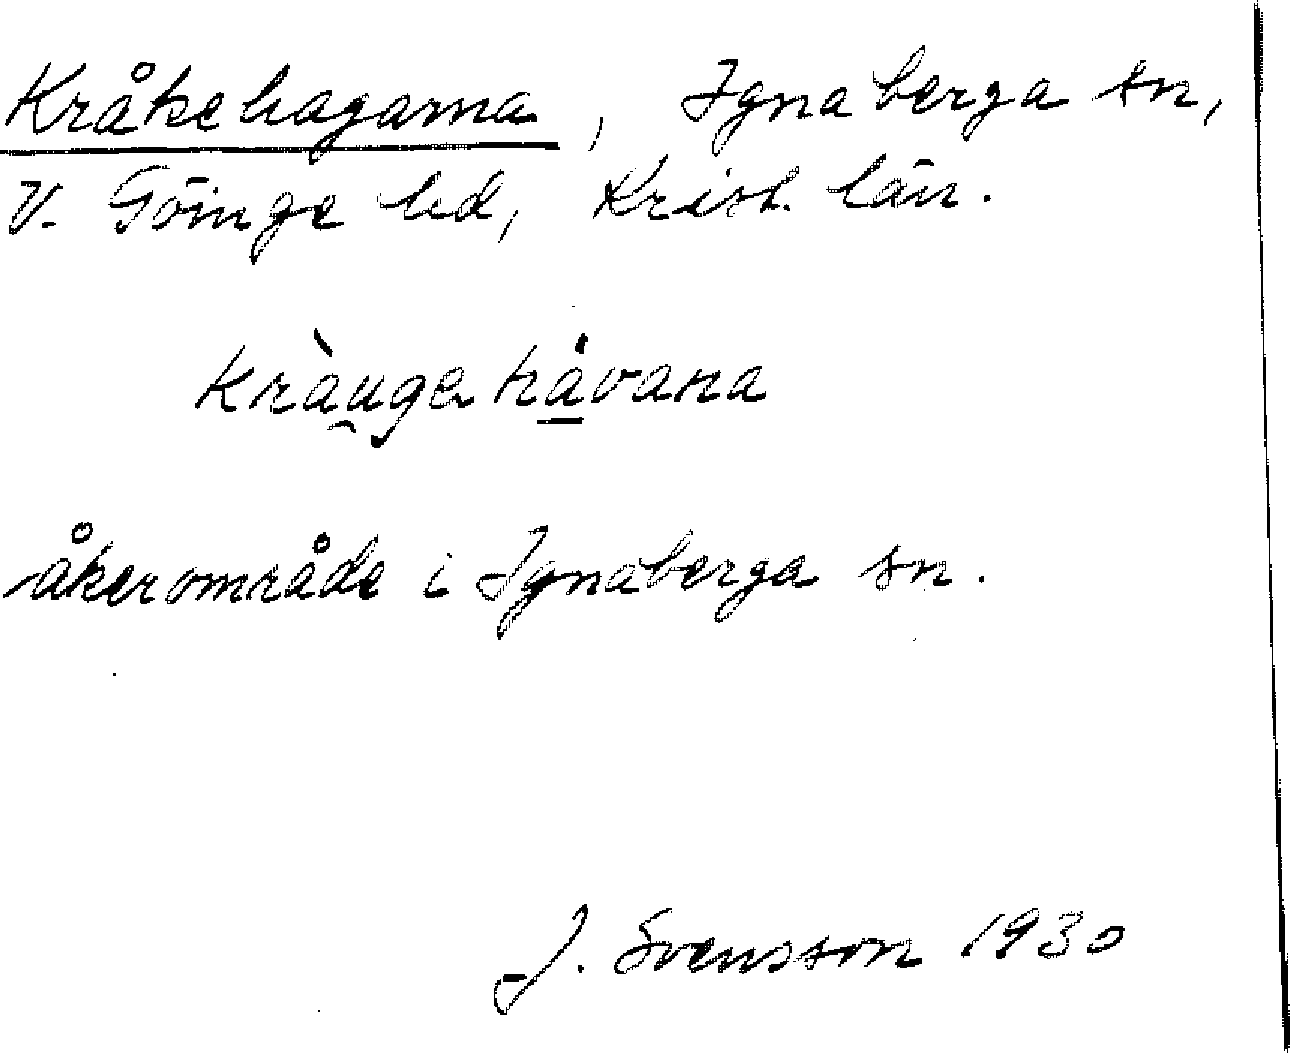 Kråkehagarna, Ignaberga sn,
V. Göinge hd, Krist. län.
kràu̯gahávana
åkerområde i Ignaberga sn.
J. Svensson 1930